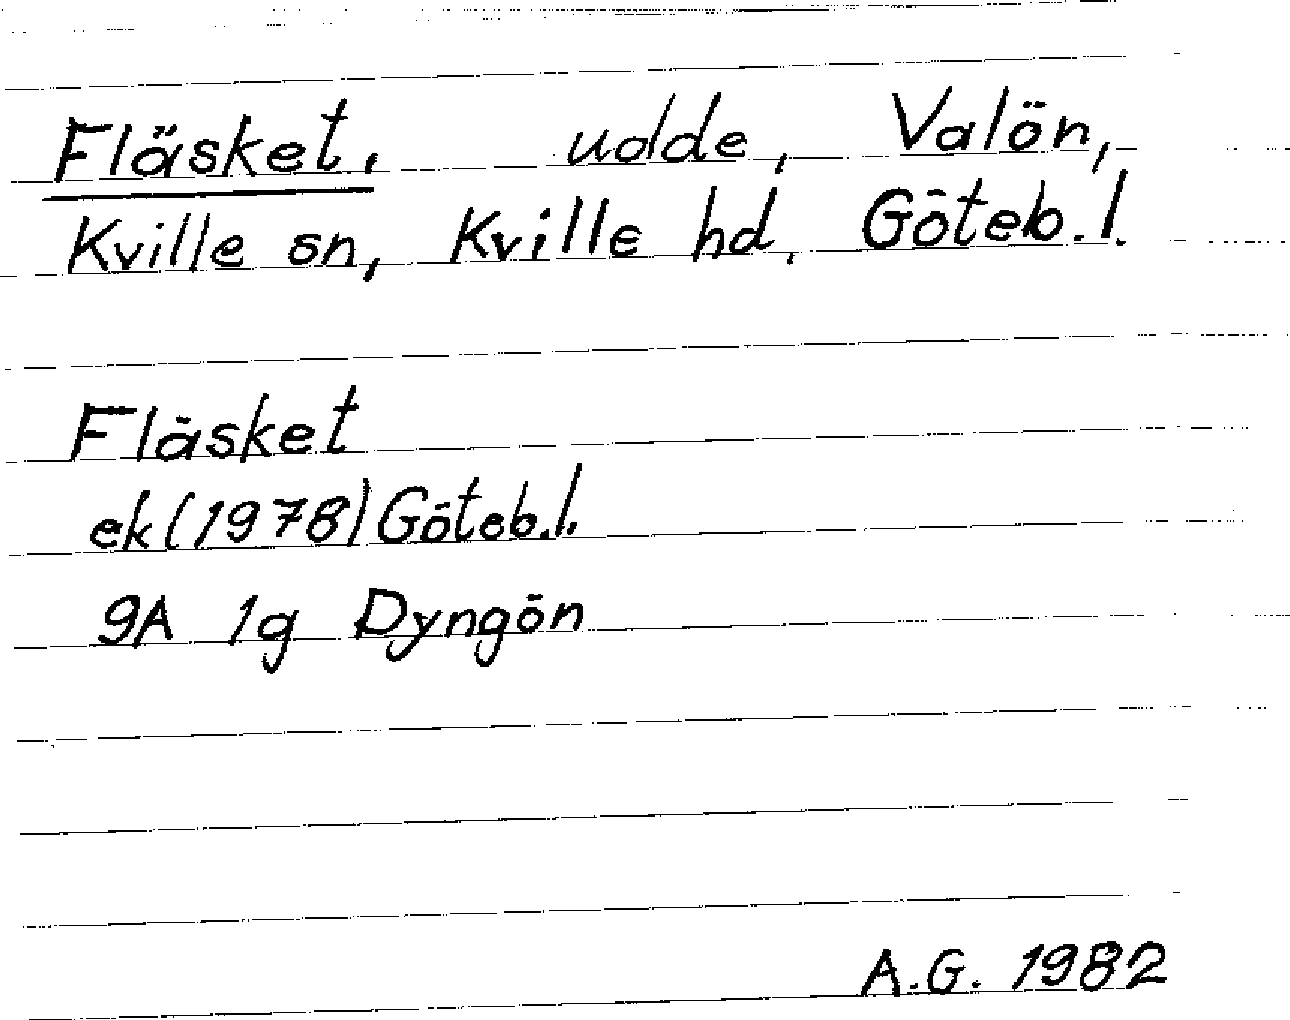 Fläsket, udde, Valön,
Kville sn, Kville hd, Göteb.l.
Fläsket
ek (1978) Göteb.l.
9A 1g Dyngön
A.G. 1982